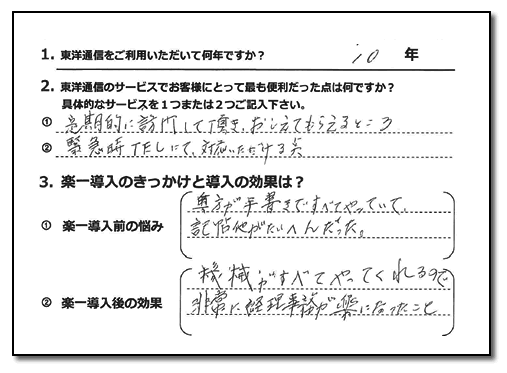 1. 東洋通信をご利用いただいて何年ですか? 10 年
2. 東洋通信のサービスでお客様にとって最も便利だった点は何ですか?
具体的なサービスを1つまたは2つご記入下さい。
① 定期的に訪問して頂き、おしえてもらえるところ
② 緊急時TELにて、対応いただける点
3. 楽一導入のきっかけと導入の効果は?
① 楽一導入前の悩み
専方が手書きですべてやっていて、
記帖他がたいへんだった。
② 楽一導入後の効果
機械がすべてやってくれるので
非常に経理事務が楽になったこと